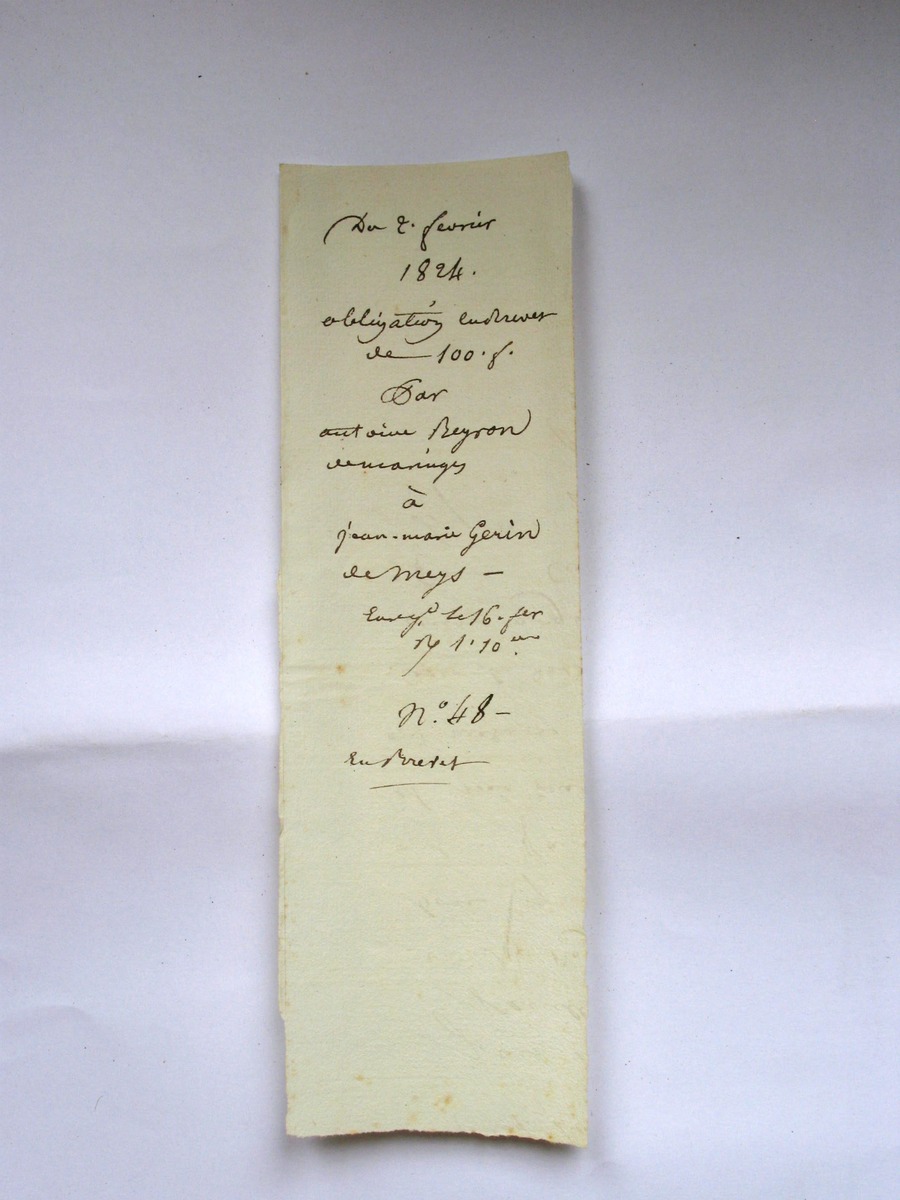 Du 2. fevrier
1824.
obligation en brevet
de 100. f.
Par
antoine Peyron
de maringes
à
jean-marie Gerin
de Meys —
Enregé. le 16. fer
R 1. 10
N.º 48 —
En Brevet